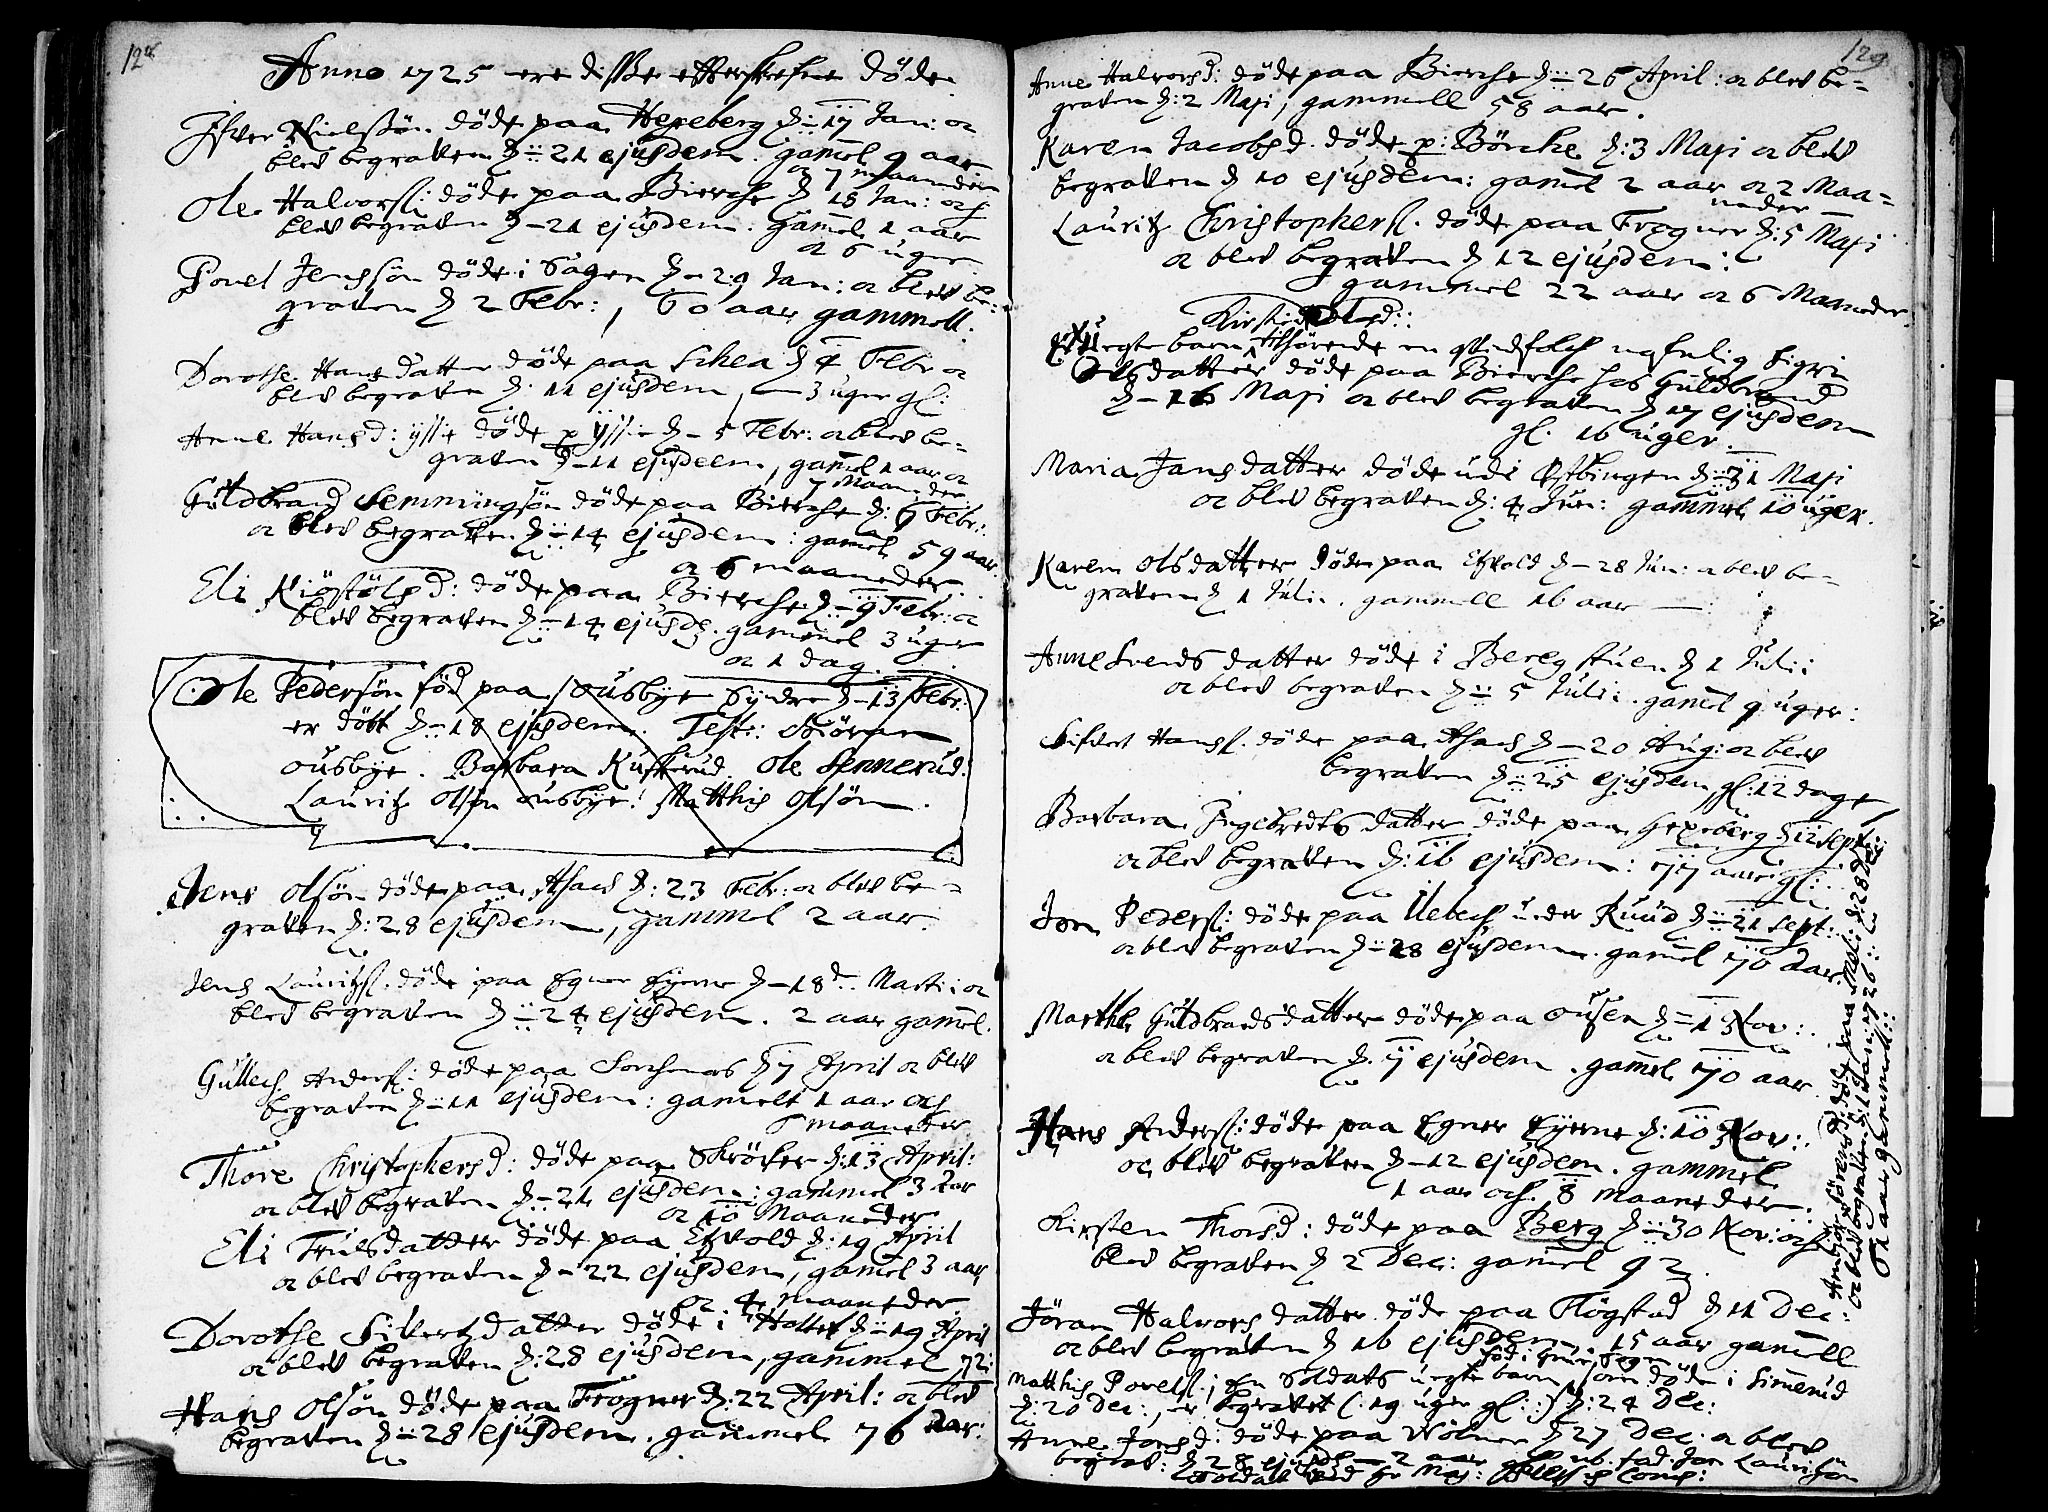 128
Anno 1725 ere disse effterskrefne döde.
Ifver Nielssön döde paa Hexeberg d: 17 Jan: oc
blev begraven d: 21 ejusdem. gamel 9 aar
oc 7 maaneder
Ole Halvors: döde paa Bierche d 18 Jan: och
blev begraven d 21 ejusdem: gamel 1 aar
oc 6 uger
Povel Jenssön döde i Sagen d 29 Jan: oc blev be-
graven d 2 Febr:, 60 aar gammell.
Dorothe Hansdatter döde paa d 4 Febr oc
blev begraven d. 11 ejusdem, 3 uger gl:
Anne Hansd: döde p d 5 Febr: oc blev be-
graven d 11 ejusdem, gamel 1 aar oc
7 Maaneder
Guldbrand Semmingsön döde paa Bierche d: 9 Febr:
oc blev begraven d: 14 ejusdem: gamel 59 aar
oc 6 maaneder.
Eli Kiöstölsd: döde paa Bierche d 9 Febr: oc
blev begraven d: 14 ejusd. gammel 3 uger
oc 1 dag.
Ole Pedersön föd paa Ousbye Syndre d 13 Febr:
er döbt d 18 ejusdem. Test:
ousbye. Barbara Kusserud. Ole Sennerud.
Lauritz olsön ousbye. Matthis olsön.
Jens olsön döde paa Asach d: 23 Febr: oc blev be-
graven d: 28 ejusdem, gammel 2 aar.
Jens Lauritzs. döde paa Egner d 18 Marti: oc
blev begraven d 24 ejusdem. 2 aar gamel.
Gullech Anders: döde paa d 7 April oc blev
begraven d 11 ejusdem: gamelt 1 aar och
maaneder
Thore Christophersd: döde paa d: 13 April:
oc blev begraven d: 21 ejusdem: gammel 3 aar
oc 10 Maaneder
Eli Trulsdatter döde paa d: 19 April
oc blev begraven d 22 ejusdem, gamel 3 aar
oc 4 maaneder.
Dorothe Sivertzdatter döde i Holtet d 19 April
oc blev begraven d: 28 ejusdem, gammel 72:
Hans olsön döde paa Frogner d: 22 April: oc blev
begraven d 28 ejusdem. gammel 76 aar:
129
Anne Halvorsd: döde paa Bierche d 26 April: oc blev be-
graven d: 2 Maji, gammell 58 aar.
Karen Jacobsd. döde p: Börche d: 3 Maji oc blev
begraven d 10 ejusdem: gamel 2 aar oc 2 Maa-
neder
Lauritz Christophers. döde paa Frogner d: 5 Maji
oc blev begraven d 12 ejusdem:
gammel 22 aar oc 6 Maaneder.
Kirstie Olsd:
uegte barn tilhörende en qvindfolch nafnlig Sigri
Olsdatter döde paa Bierche hos Guldbrand
d 16 Maji oc blev begraven d 17 ejusdem
gl. 16 uger.
Maria Jansdatter döde udi Östbingen d: 31 Maji
oc blev begraven d: 4 Jun: gammel 10 uger.
Karen olsdatter döde paa d 28 Jun: oc blev be-
graven d 1 Juli. gammell 16 aar
Anne Svendsdatter döde i Beregstuen d 1 Juli:
oc blev begraven d 5 Juli. gamel 9 uger:
Sifvert Hans. döde paa Asach d 20 Aug: oc blev
begraven d: 25 ejusdem, gl: 12 dage
Barbara Ingebredtsdatter döde paa Hexeberg d 12 Sept:
oc blev begraven d: 16 ejusdem: 77 aar gl:
Jon Peders: döde paa under Ruud d: 21 Sept:
oc blev begraven d 28 ejusdem. gamel 70 aar
Marthe Guldbrandsdatter döde paa ousen d 1 Nov:
oc blev begraven d. 7 ejusdem. gamel 70 aar
Hans Anders: döde paa Egner d: 10 Nov:
oc blev begraven d 12 ejusdem. gammel
1 aar och 8 maaneder.
Kirsten Thorsd: döde paa Berg d 30 Nov: och
blev begraven d 2 Dec: gamel 92.
Jöran Halvorsdatter döde paa Flögstad d 11 Dec:
oc blev begraven d 16 ejusdem, 15 aar gamell
Matthis Povels:, en Soldats uegte barn, som döde i Simerud
d: 20 Dec:, er begravet (: 19 uger gl: :) d: 24 Dec:
Anne Jonsd: döde paa Wölner d 27 Dec. oc blev
begrav: d 28 ejusd 2 aar gl. nb. fad. Jon Lauritzön
Soldat Comp:
döde paa d: 28 Dec:
oc blev begraven d: 1 Jan: 1726
aar gammell: